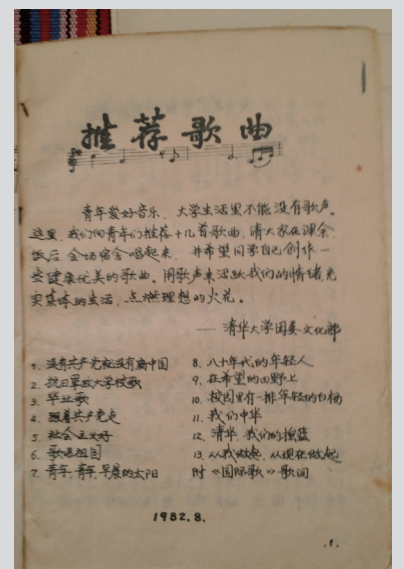 推荐歌曲
青年爱好音乐，大学生活里不能没有歌声。
这里，我们向青年们推荐十几首歌曲，请大家在课余
饭后、会场宿舍唱起来，并希望同学自己创作一
些健康优美的歌曲。用歌声来活跃我们的情绪，充
实集体的生活，点燃理想的火花。
——清华大学团委文化部
1. 没有共产党就没有新中国
2. 抗日军政大学校歌
3. 毕业歌
4. 跟着共产党走
5. 社会主义好
6. 歌唱祖国
7. 青年，青年，早晨的太阳
8. 八十年代的年轻人
9. 在希望的田野上
10. 校园里有一排年轻的白杨
11. 我们中华
12. 清华，我们的摇篮
13. 从我做起，从现在做起
附《国际歌》歌词
1982.8.
.1.